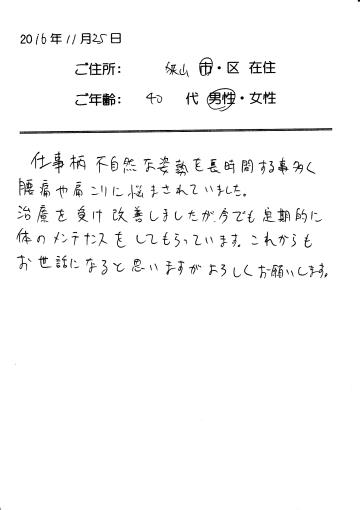 2016年11月25日
ご住所: 狭山 市・区 在住
ご年齢: 40 代 男性・女性
仕事柄 不自然な姿勢を長時間する事多く
腰痛や肩こりに悩まされていました。
治療を受け改善しましたが、今でも定期的に
体のメンテナンスをしてもらっています。これからも
お世話になると思いますがよろしくお願いします。